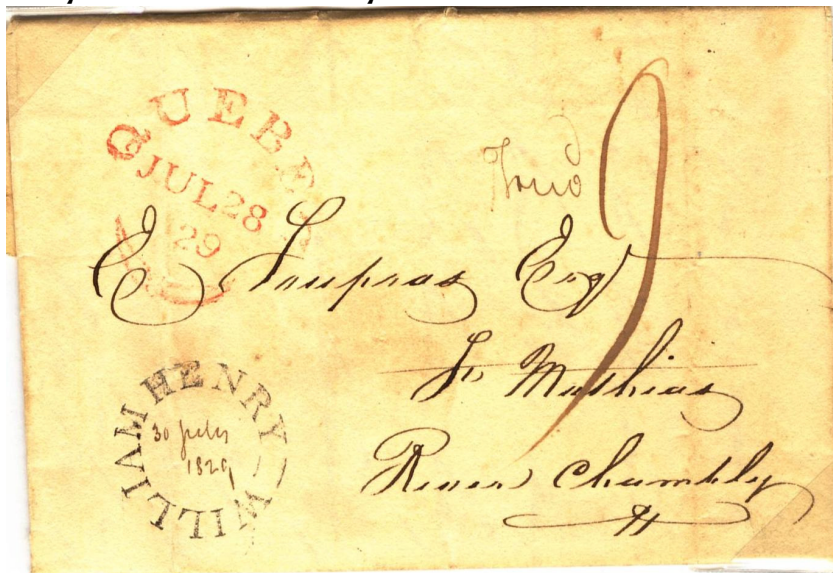 QUEBEC
JUL 28
29
9
E Soupras Esqr
St Mathias
River Chambly
WILLIAM HENRY
30 July
1829